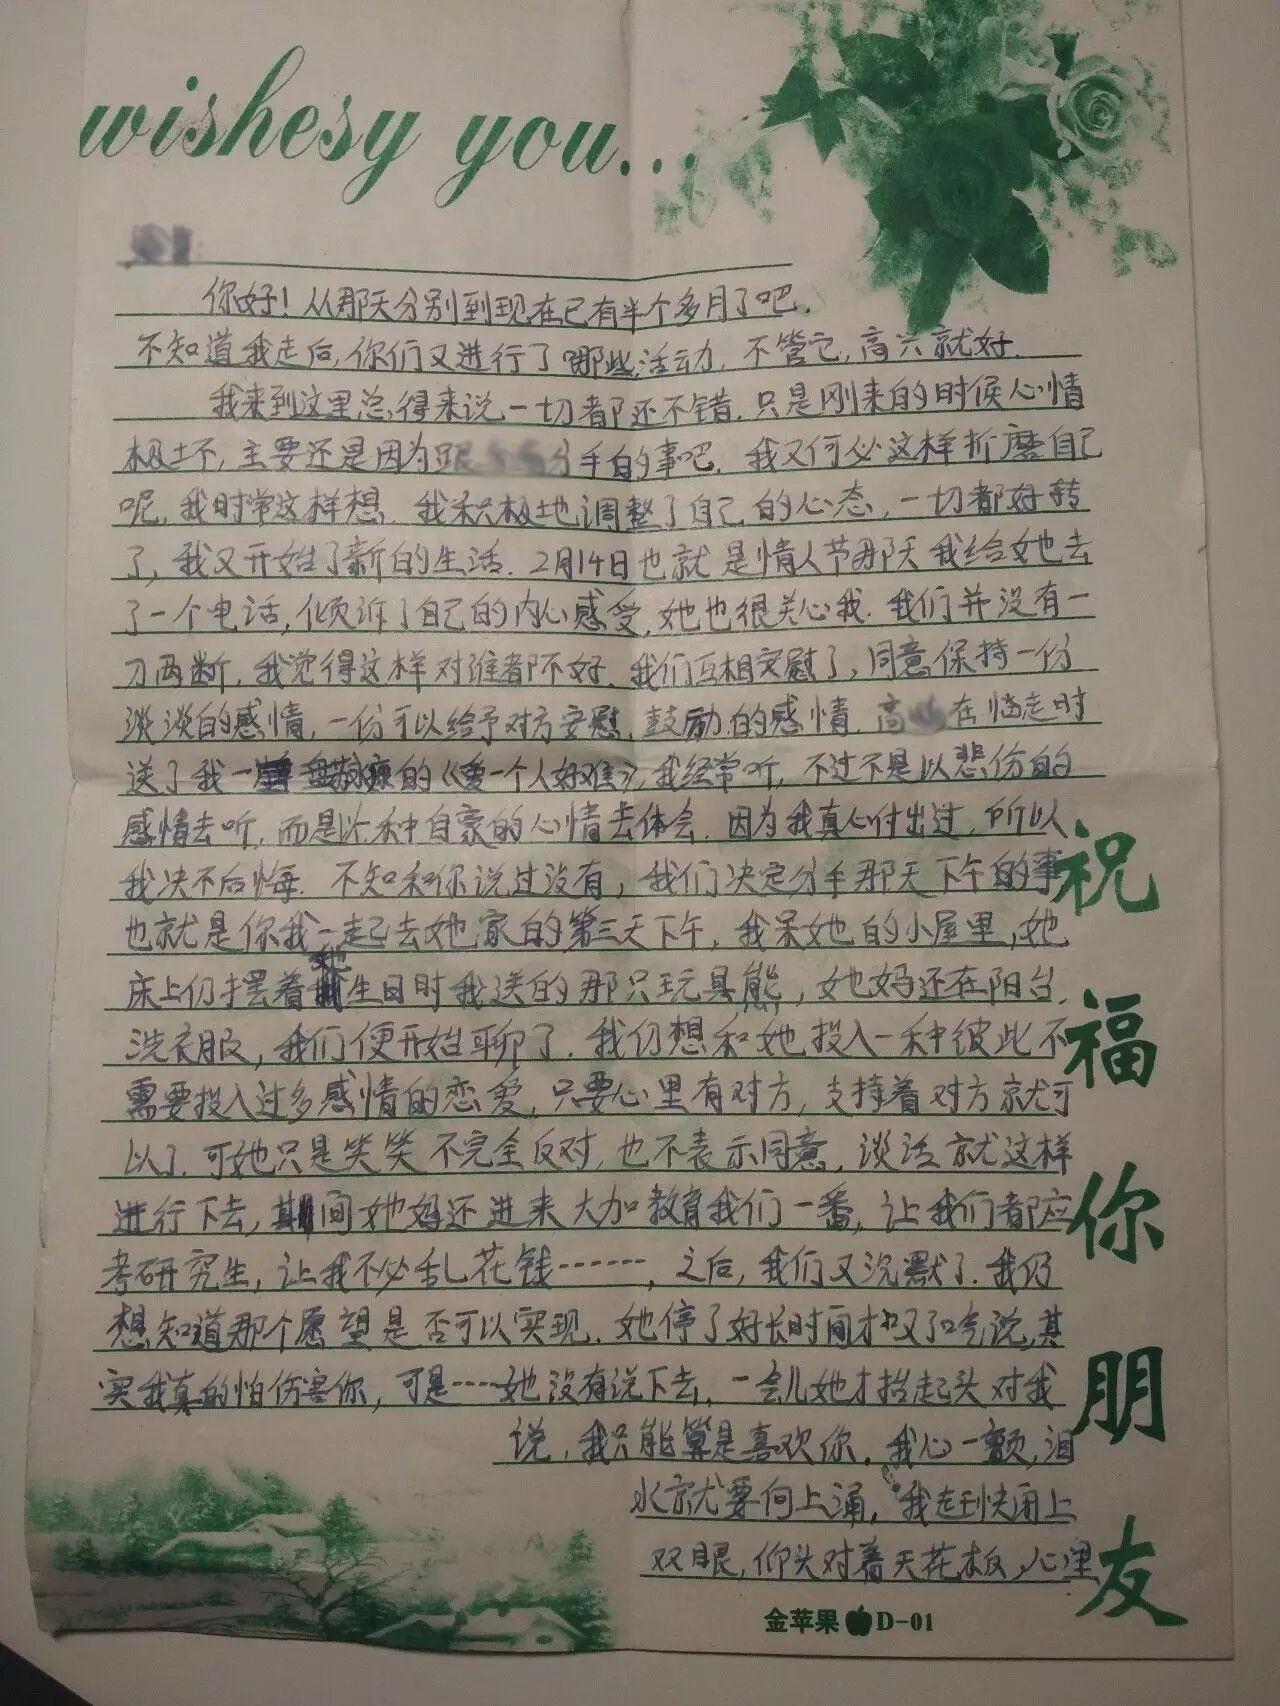 wishesy you...
你好！从那天分别到现在已有半个多月了吧.
不知道我走后,你们又进行了哪些活动.不管它,高兴就好.
我来到这里总得来说一切都还不错.只是刚来的时候心情
极坏,主要还是因为跟 分手的事吧.我又何必这样折磨自己
呢,我时常这样想.我积极地调整了自己的心态,一切都好转
了,我又开始了新的生活.2月14日也就是情人节那天我给她去
了一个电话,倾诉了自己的内心感受,她也很关心我.我们并没有一
刀两断,我觉得这样对谁都不好.我们互相安慰了,同意保持一份
淡淡的感情,一份可以给予对方安慰,鼓励的感情.高 在临走时
送了我一 的《爱一个人好难》,我经常听,不过不是以悲伤的
感情去听,而是以种自豪的心情去体会.因为我真心付出过,所以
我决不后悔.不知和你说过没有,我们决定分手那天下午的事
也就是你我一起去她家的第三天下午,我呆她的小屋里,她
床上仍摆着她生日时我送的那只玩具熊,她妈还在阳台
洗衣服,我们便开始聊了.我仍想和她投入一种彼此不
需要投入过多感情的恋爱,只要心里有对方,支持着对方就可
以了.可她只是笑笑不完全反对,也不表示同意,谈话就这样
进行下去,其间她妈还进来大加教育我们一番,让我们都应
考研究生,让我不必乱花钱……,之后,我们又沉默了.我仍
想知道那个愿望是否可以实现.她停了好长时间才叹了口气说,其
实我真的怕伤害你,可是……她没有说下去,一会儿她才抬起头对我
说,我只能算是喜欢你.我心一颤,泪
水就要向上涌,我赶快闭上
双眼,仰头对着天花板,心里
祝福你朋友
金苹果 D-01